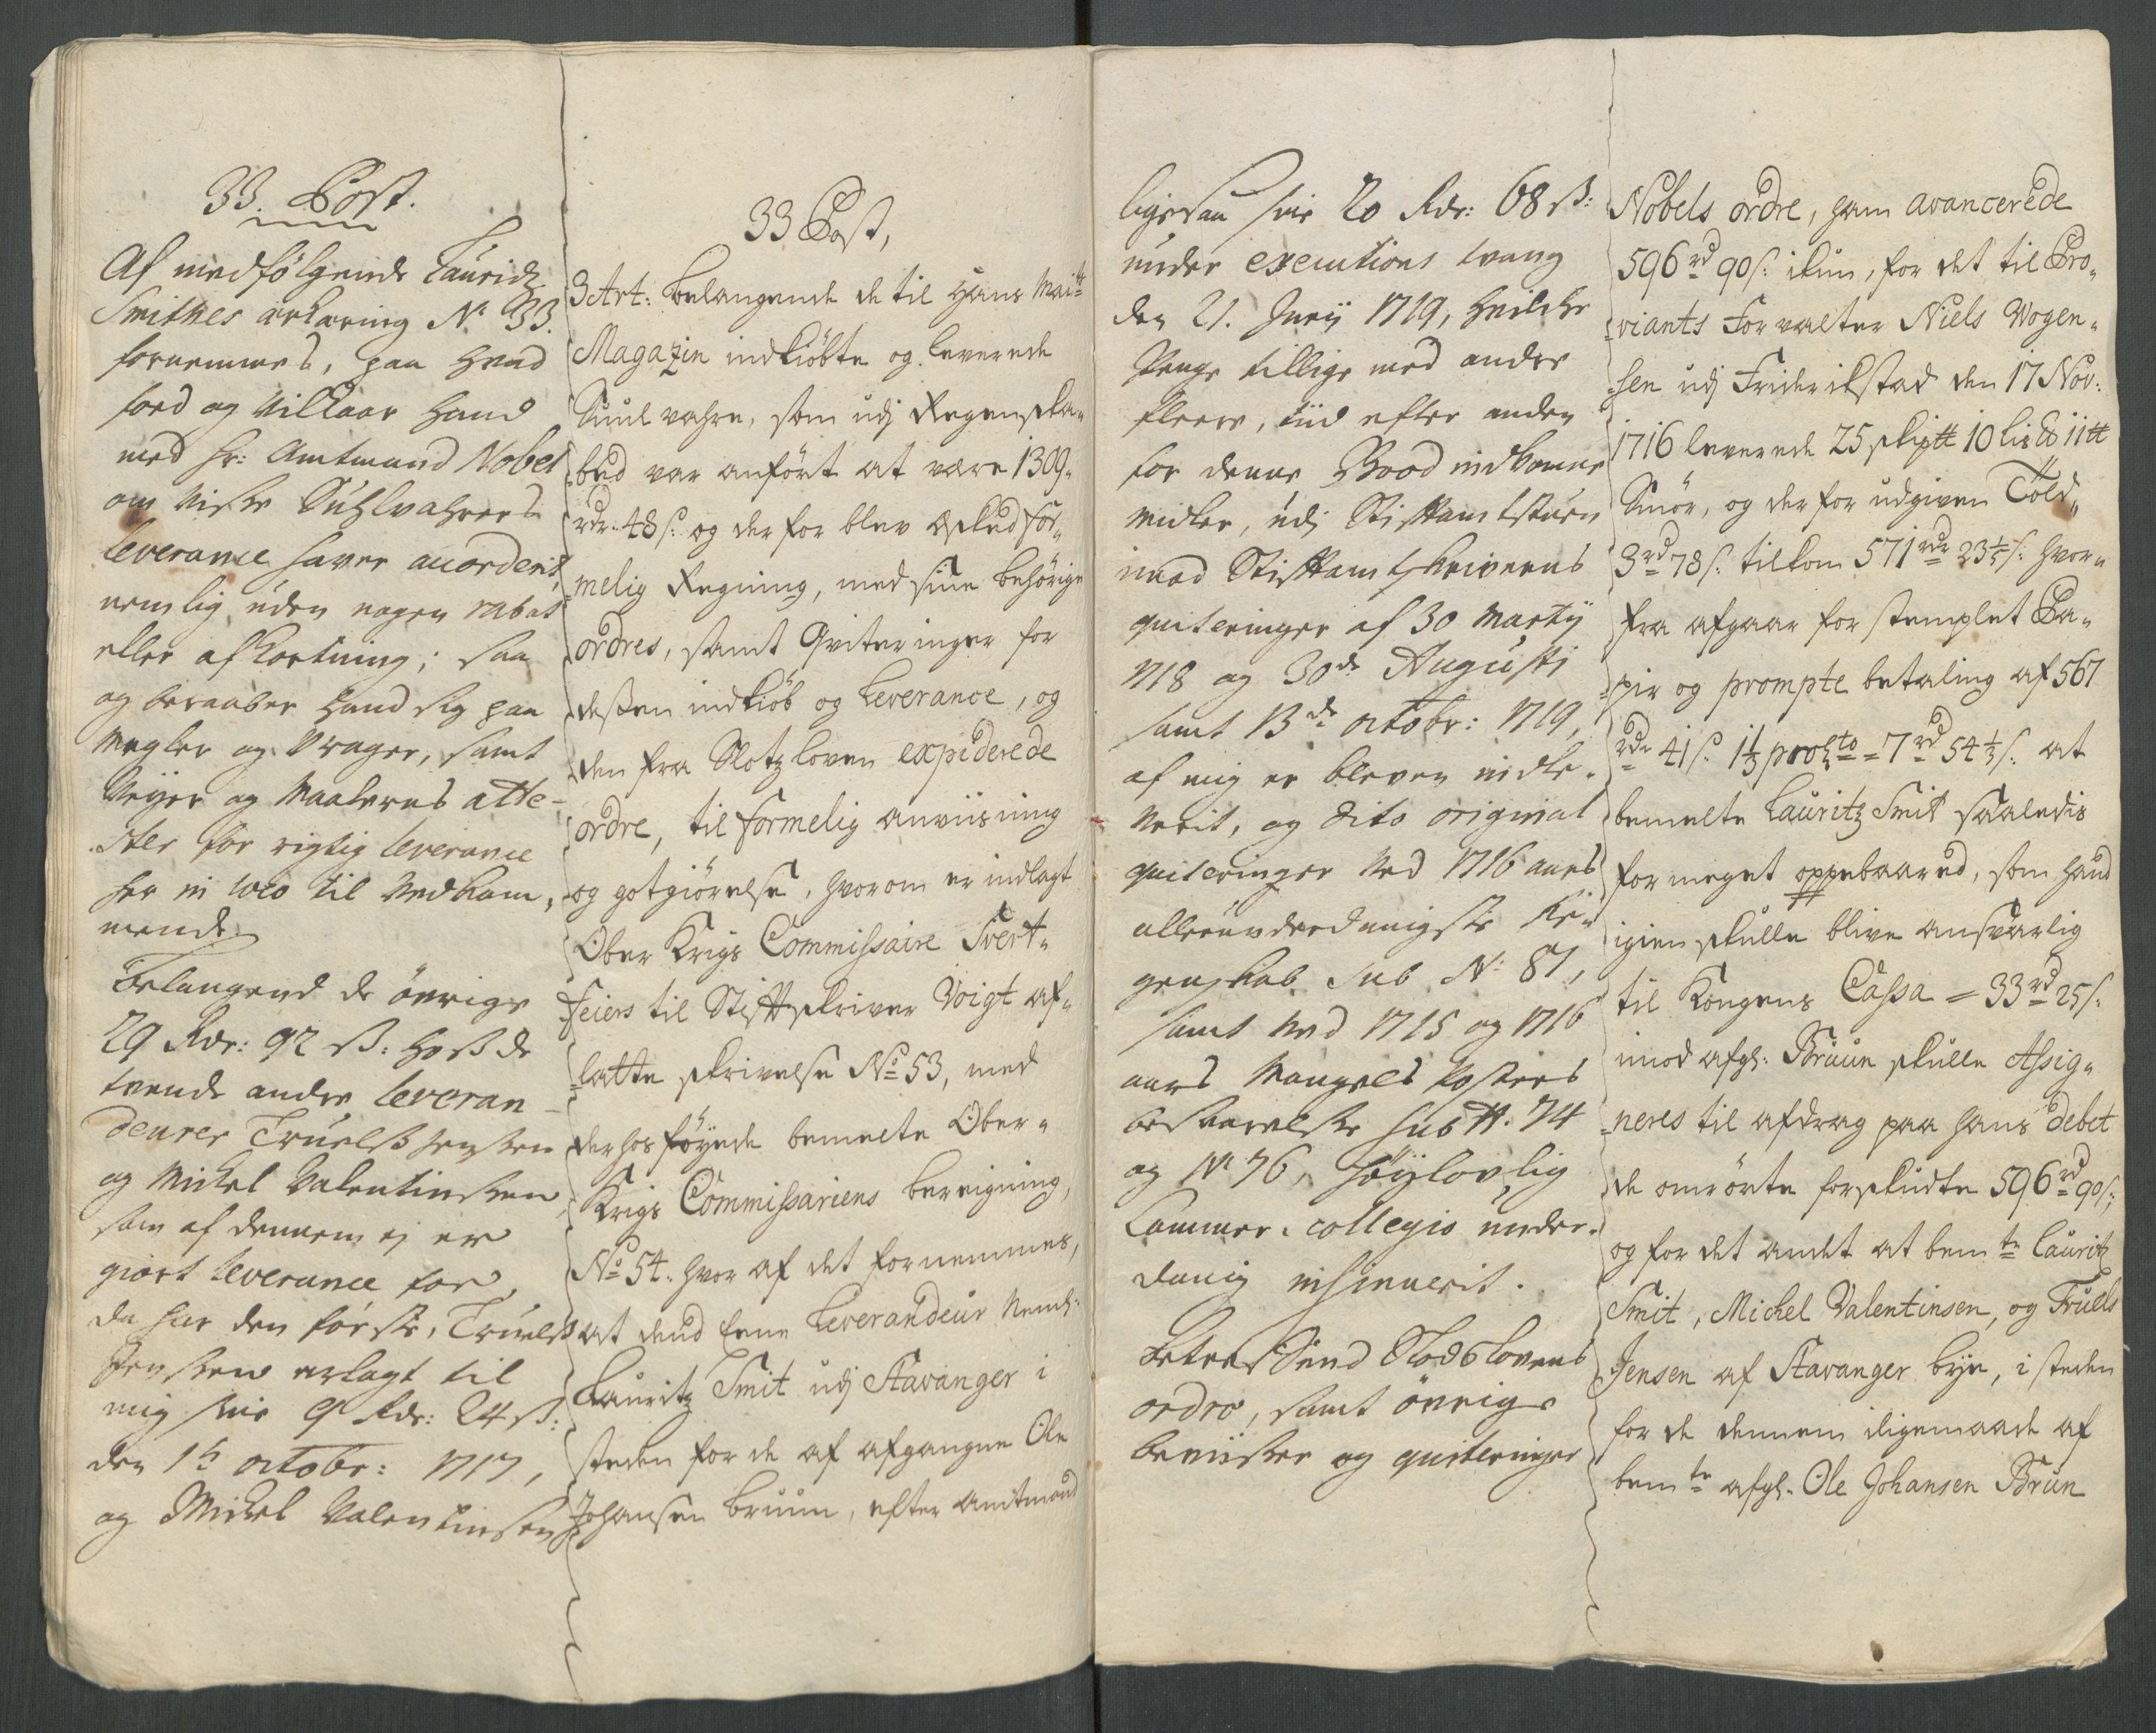 33. Post.
Af medfölgende Lauridz
Smithes erklæring N: 33.
fornemmes, paa hvad
foed og Vilkaar hand
med Hr: Amtmand Nobel
om disse Suhlvahrers
leverance haver accorderit,
nemlig uden nogen rabat
eller afkortning; saa
og beraaber hand sig paa
Megler og Vrager, samt
Veyer og Maalernes atte-
ster for rigtig leverance
her in loco til Vedkom-
mende
Belangend de övrige
29 Rdr: 92 ß: hos de
tvende andre leveran-
deurer Truels Jenssen
og Mickel Valentinssen,
som af dennem ej er
giort leverance for,
da har den förste, Truels
Jenssen erlagt til
mig sine 9 Rdr: 24 ß:
den 15 octobr: 1717,
og Mickel Valentinssen
33 Post,
3 Art: belangende de til Hans Maitt
Magazin indkiöbte og leverede
Suul vahre, som udj Regenska-
bed var anfört at være 1309-
rdr 48 s: og derfor blev æsked for-
melig Regning, med sine behörige
ordres, samt Qviteringer for
deßen indkiöb og Leverance, og
den fra Slotzloven expiderede
ordre, til formelig anviisning
og gotgiörelse, hvorom er indlagt
Ober Krigs Commissaire Svert-
feiers til Stiftskriver Voigt af-
latte skrivelse No 53, med
derhos föyede bemelte Ober-
Krigs Commissariens beregning,
No 54. hvor af det fornemmes,
at dend Eene Leverandeur Nemb:
Lauritz Smit udj Stavanger i
steden for de af afgangne Ole
Johansen Bruun, efter amtmand
ligesaa sine 20 Rdr: 68 ß:
under executions tvang
den 21. Junij 1719, hvilcke
Penge tillige med andre
fleere, tiid efter anden
for denne Brod indkomne
midler, udj Stiftamtstuen
imod Stiftamtskriverens
quiteringer af 30 Martij
1718 og 30de Augustj
samt 13de octobr: 1719,
af mig er bleven indle-
verit, og dito original
quiteringer Ved 1716 aars
allerunderdanigste Re-
genskab sub N: 87,
samt Ved 1715 og 1716
aars Mangels Posters
besvarelse sub N. 74
og N: 76, Höylovlig
Cammer-collegio under-
danig insinuerit.
Betreffend Slodslovens
ordre, samt övrige
beviiser og quiteringer
Nobels ordre, ham avancerede
596 rd 90 s: ikun, for det til Pro-
viants Forvalter Niels Wogen-
sen udj Friderikstad den 17 Nov:
1716 leverede 25 skip tt 10 lis tt 11 tt
Smör, og derfor udgiven Told,
3 rd 78 s: tilkom 571 rdr 23 1/5 s: hvor-
fra afgaar for stemplet Pa-
pir og prompte betaling af 567
rdr 41 s: 1 1/3 pro Cto = 7 rd 54 1/2 s: at
bemelte Lauritz Smit saaledis
for meget oppebaared, som hand
igien skulle blive ansvarlig
til Kongens Cassa = 33 rd 25 s:
imod afgl: Bruun skulle Assig-
neres til afdrag paa hans debet
de omrörte forskudte 596 rd 90 s:,
og for det andet at bem te Lauritz
Smit, Michel Valentinsen, og Truels
Jensen af Stavanger bye, i steden
for de dennem ligemaade af
bem te afgl. Ole Johansen Brun